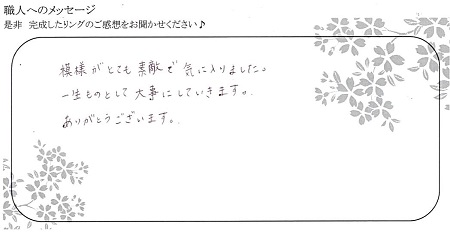 職人へのメッセージ
是非 完成したリングのご感想をお聞かせください♪
模様がとても素敵で気に入りました。
一生ものとして大事にしていきます。
ありがとうございます。